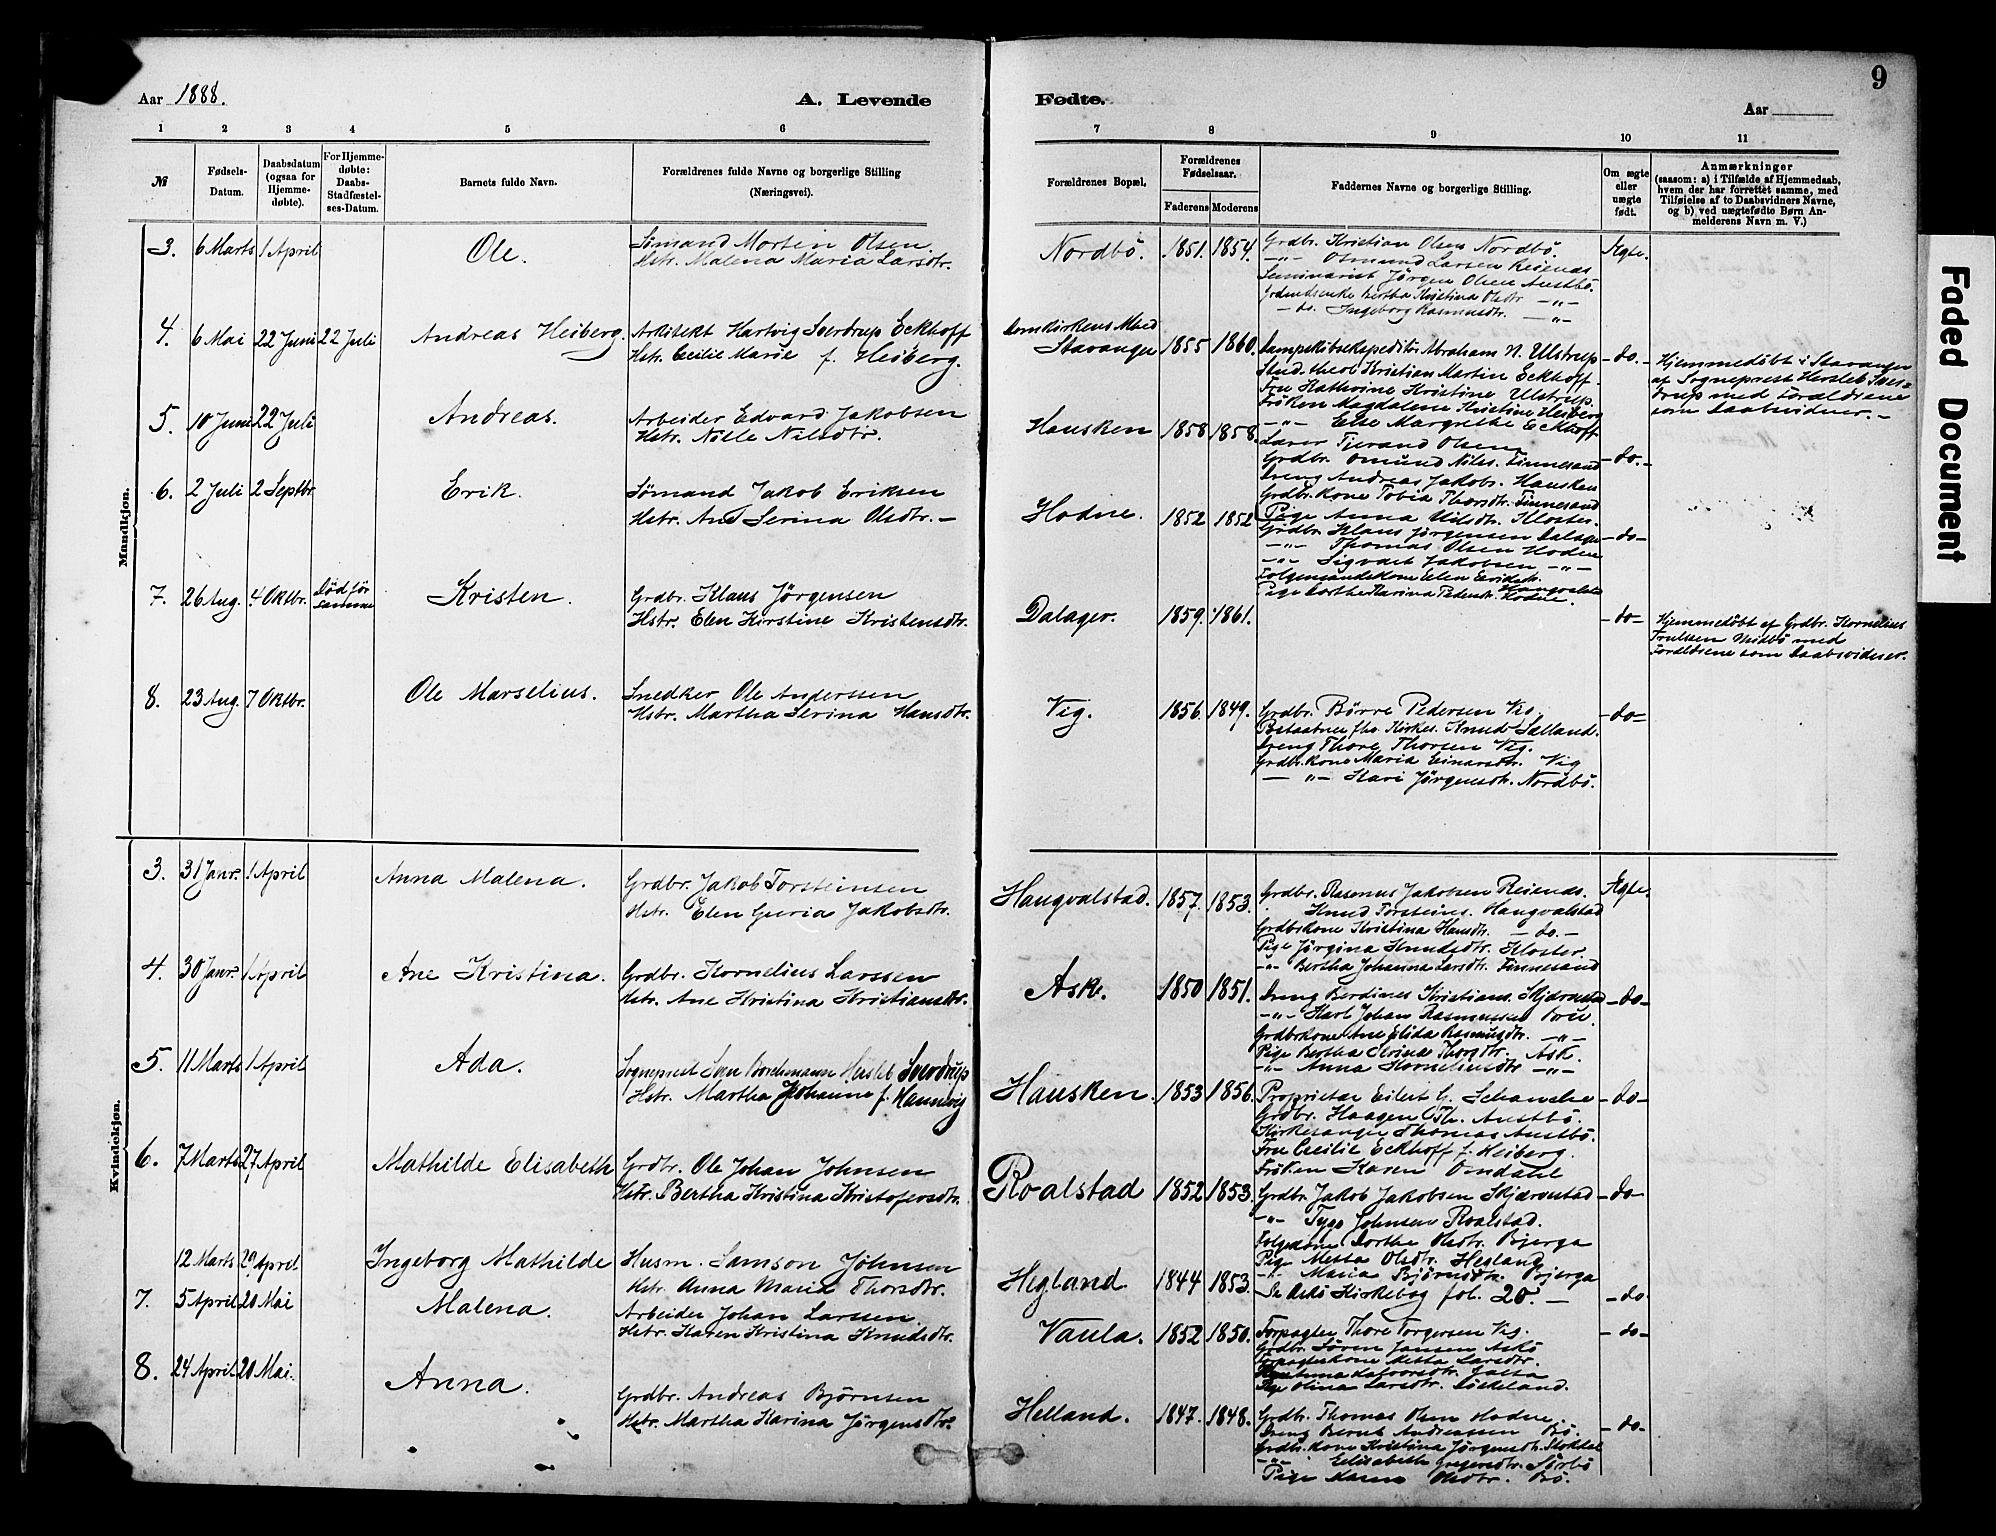 Aar 1888.
A. Levende
1 2 3 4 5 6
№
Fødsels-Datum.
Daabsdatum (ogsaa for Hjemme-døbte).
For Hjemme-døbte: Daabs-Stadfæstel-ses-Datum.
Barnets fulde Navn.
Forældrenes fulde Navne og borgerlige Stilling (Næringsvei).
Mandkjøn.
3. 6 Marts 1 April Ole. Sømand Morten Olsen
Hstr. Malena Maria Larsdtr.
4. 6 Mai 22 Juni 22 Juli Andreas Heiberg. Arkitekt Hartvig Sverdrup Eckhoff
Hstr. Cecilie Marie f. Heiberg.
5. 10 Juni 22 Juli Andreas. Arbeider Edvard Jakobsen
Hstr. Nille Nilsdtr.
6. 2 Juli 2 Septbr. Erik. Sømand Jakob Eriksen
Hstr. Ane Serina Olsdtr. –
7. 26 Aug. 4 Oktbr. Død før samme Kristen. Grdbr. Klaus Jørgensen
Hstr. Elen Kirstine Kristensdtr.
8. 23 Aug. 7 Oktbr. Ole Marselius. Snedker Ole Anderssen
Hstr. Martha Serina Hansdtr.
Kvindekjøn.
3. 31 Janr. 1 April Anna Malena. Grdbr. Jakob Torsteinsen
Hstr. Elen Guria Jakobsdtr.
4. 30 Janr. 1 April Ane Kristina. Grdbr. Kornelius Larssen
Hstr. Ane Kristina Kristiansdtr.
5. 11 Marts 1 April Ada. Sogneprest Sven Borchmann Hersleb Sverdrup
Hstr. Martha Johanne f. Hannevig
6. 7 Marts 27 April Mathilde Elisabeth Grdbr. Ole Johan Johnsen
Hstr. Bertha Kristina Kristofersdtr.
12 Marts 29 April Ingeborg Mathilde Husm. Samson Johnsen
Hstr. Anna Maria Thorsdtr.
7. 5 April 20 Mai Malena. Arbeider Johan Larssen.
Hstr. Karen Kristina Knudsdtr.
8. 24 April 20 Mai. Anna. Grdbr. Andreas Bjørnsen
Hstr. Martha Karina Jørgensdtr.
Fødte.
9
Aar
7 8 9 10 11
Forældrenes Bopæl.
Forældrenes Fødselsaar.
Faderens Moderens
Faddernes Navne og borgerlige Stilling.
Om ægte eller uægte født.
Anmærkninger
(saasom: a) i Tilfælde af Hjemmedaab,
hvem der har forrettet samme, med
Tilføielse af to Daabsvidners Navne,
og b) ved uægtefødte Børn An-
melderens Navn m. V.)
Nordbö. 1851. 1854. Grdbr. Kristian Olsen Nordbö. Ægte.
–"– Osmund Larsen Reienes
Seminarist Jörgen Olsen Austbö.
Bertha Kristina Olsdtr. –"–
– do. Ingeborg Rasmusdtr. –"–
Domkirkens
Stavanger 1855 1860. Dampskibsekspeditör Abraham N. Ulstrup – do. –
Stud. theol Kristian Martin Eckhoff.
Fru Kathrine Kristine Ulstrup.
Fröken Magdalene Kristine Heiberg
–"– Else Margrethe Eckhoff
Hjemmedöbt i Stavanger
af Sogneprest Hersleb Sver=
drup med forældrene
som Daabsvidner. –
Hausken 1858 1858. Lærer Tjerand Olsen – do. –
Grdbr. Omund Nils. Finnesand
Dreng Andreas Jakobs. Hausken
Grdbr.kone Tobia Thorsdtr. Finnesand
Pige Anna Nilsdtr. Kloster.
Hodne. 1852 1852 Grdbr. Klaus Jörgensen Dalager – do –
–"– Thomas Olsen Hodne
–"– Sigvart Jakobsen –"–
Folgemandskone Elen
Pige Dorthe Karina Pedersdtr. Hodne.
Dalager. 1859. 1861. – do – Hjemmedöbt af Grdbr. Kornelius
Midbö med
forældrene som Daabsvidner.
Vig. 1856. 1849. Grdbr. Börre Pedersen – do –
Knud Salland.
Dreng Thore Thorsen Vig.
Grdbr.kone Maria Einarsdtr. Vig
–"– Kari Jörgensdtr. Nordbö.
Haugvalstad. 1857. 1853. Grdbr. Rasmus Jakobsen Reienes. Ægte.
Knud Torsteins. Haugvalstad
Grdbrkone Kristina Hansdtr. – do. –
Pige Jörgina Knudsdtr. Kloster.
–"– Bertha Johanna Larsdtr. Finnesand
Ask. 1850 1851. Dreng Berdines Kristians. – do –
–"– Karl Johan Rasmussen
Grdbrkone Ane Elida Rasmusdtr. –"–
Pige Bertha Serina Thorsdtr. Ask.
–"– Anna Korneliusdtr –"–
Hausken. 1853 1856. Proprietær Eilert G. Schanche – do –
Grdbr. Haagen Th. Austbö.
Kirkesanger Thomas Austbö.
Fru Cecilie Eckhoff f. Heiberg.
Fröken Karen Omdahl
Roalstad 1852 1853. Grdbr. Jakob Jakobsen – do –
–"– Johnsen Roalstad.
Dorthe Olsdtr. Bjerga
Pige Metta Olsdtr. Hegland
–"– Maria Björnsdtr. Bjerga
Hegland 1844 1853. Se Askö Kirkebog fol. 20. – – do
Vaula. 1852 1850. Forpagter Thore Torgersen Vig. – do –
Grdbr. Sören Jansen Askö
Forpagterkone Metta Larsdtr.
Pige Olina Larsdtr.
Helland. 1847. 1848. Grdbr. Thomas Olsen Hodne. – do –
Dreng Bernt Andreassen Bö.
Grdbr.kone Kristina Jörgensdtr.
–"– Elisabeth Sörbö
Pige Olsdtr. Bö.
Faded Document